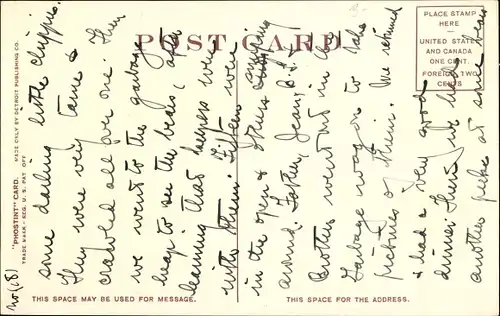 POST CARD
PLACE STAMP
HERE
UNITED STATES
AND CANADA
ONE CENT.
FOREIGN, TWO
CENTS.
"PHOSTINT" CARD. MADE ONLY BY DETROIT PUBLISHING CO.
TRADE MARK - REG. U. S. PAT. OFF.
No (8)
some darling little chippies.
They were very tame &
crawled all over me. Then
we went to the garbage
heap to see the bears, after
learning that bears were
in there. Fifteen were
in the open & others
around. Father, Jean, B. J. &
Brother went out in the
Garbage wagon to take
pictures of them. We returned
& had a very good
dinner. Then we had
another at some bears
THIS SPACE MAY BE USED FOR MESSAGE.
THIS SPACE FOR THE ADDRESS.